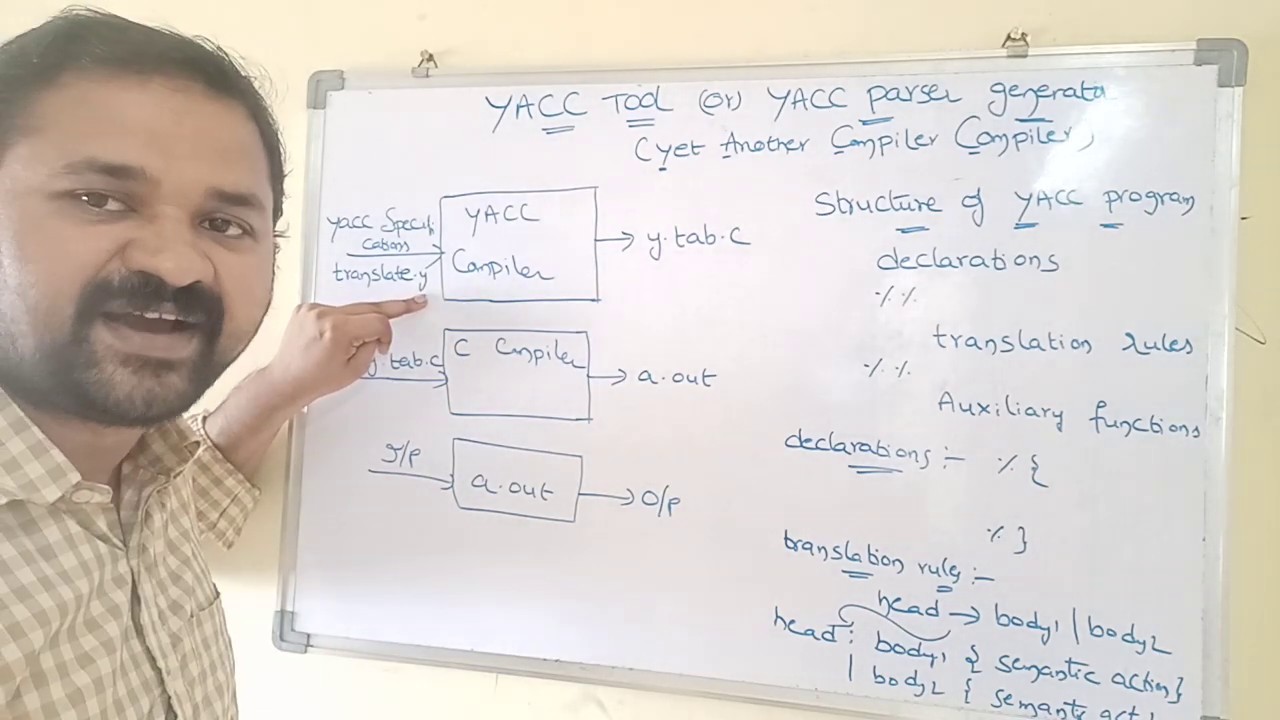 YACC TOOL (or) YACC parser generato
(yet Another Compiler Compiler)
yacc Specifi
cations
translate.y
YACC
Compiler
y.tab.c
y.tab.c
C Compiler
a.out
I/P
a.out
O/P
Structure of YACC program
declarations
%%
translation rules
%%
Auxiliary functions
declarations :- %{
%}
translation rules :-
head → body1 | body2
head : body1 { semantic action}
| body2 { semantic act